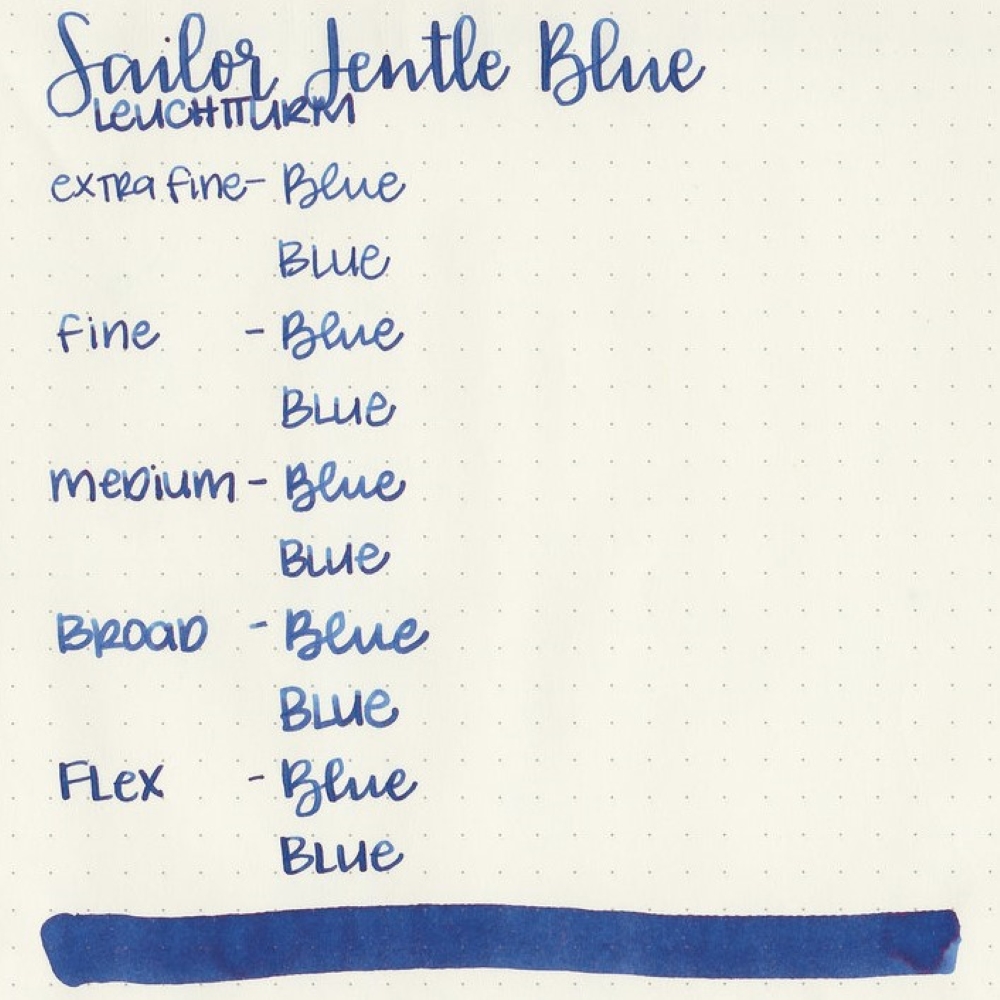 Sailor Jentle Blue
LEUCHTTURM
extra fine - Blue
BLUE
fine - Blue
BLUE
medium - Blue
BLUE
BROAD - Blue
BLUE
FLex - Blue
BLUE